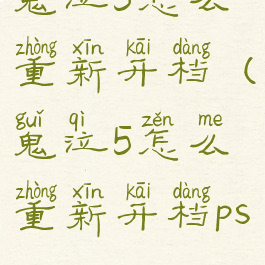 鬼泣5怎么
zhòng xīn kāi dàng
重新开档(
guǐ qì zěn me
鬼泣5怎么
zhòng xīn kāi dàng
重新开档ps